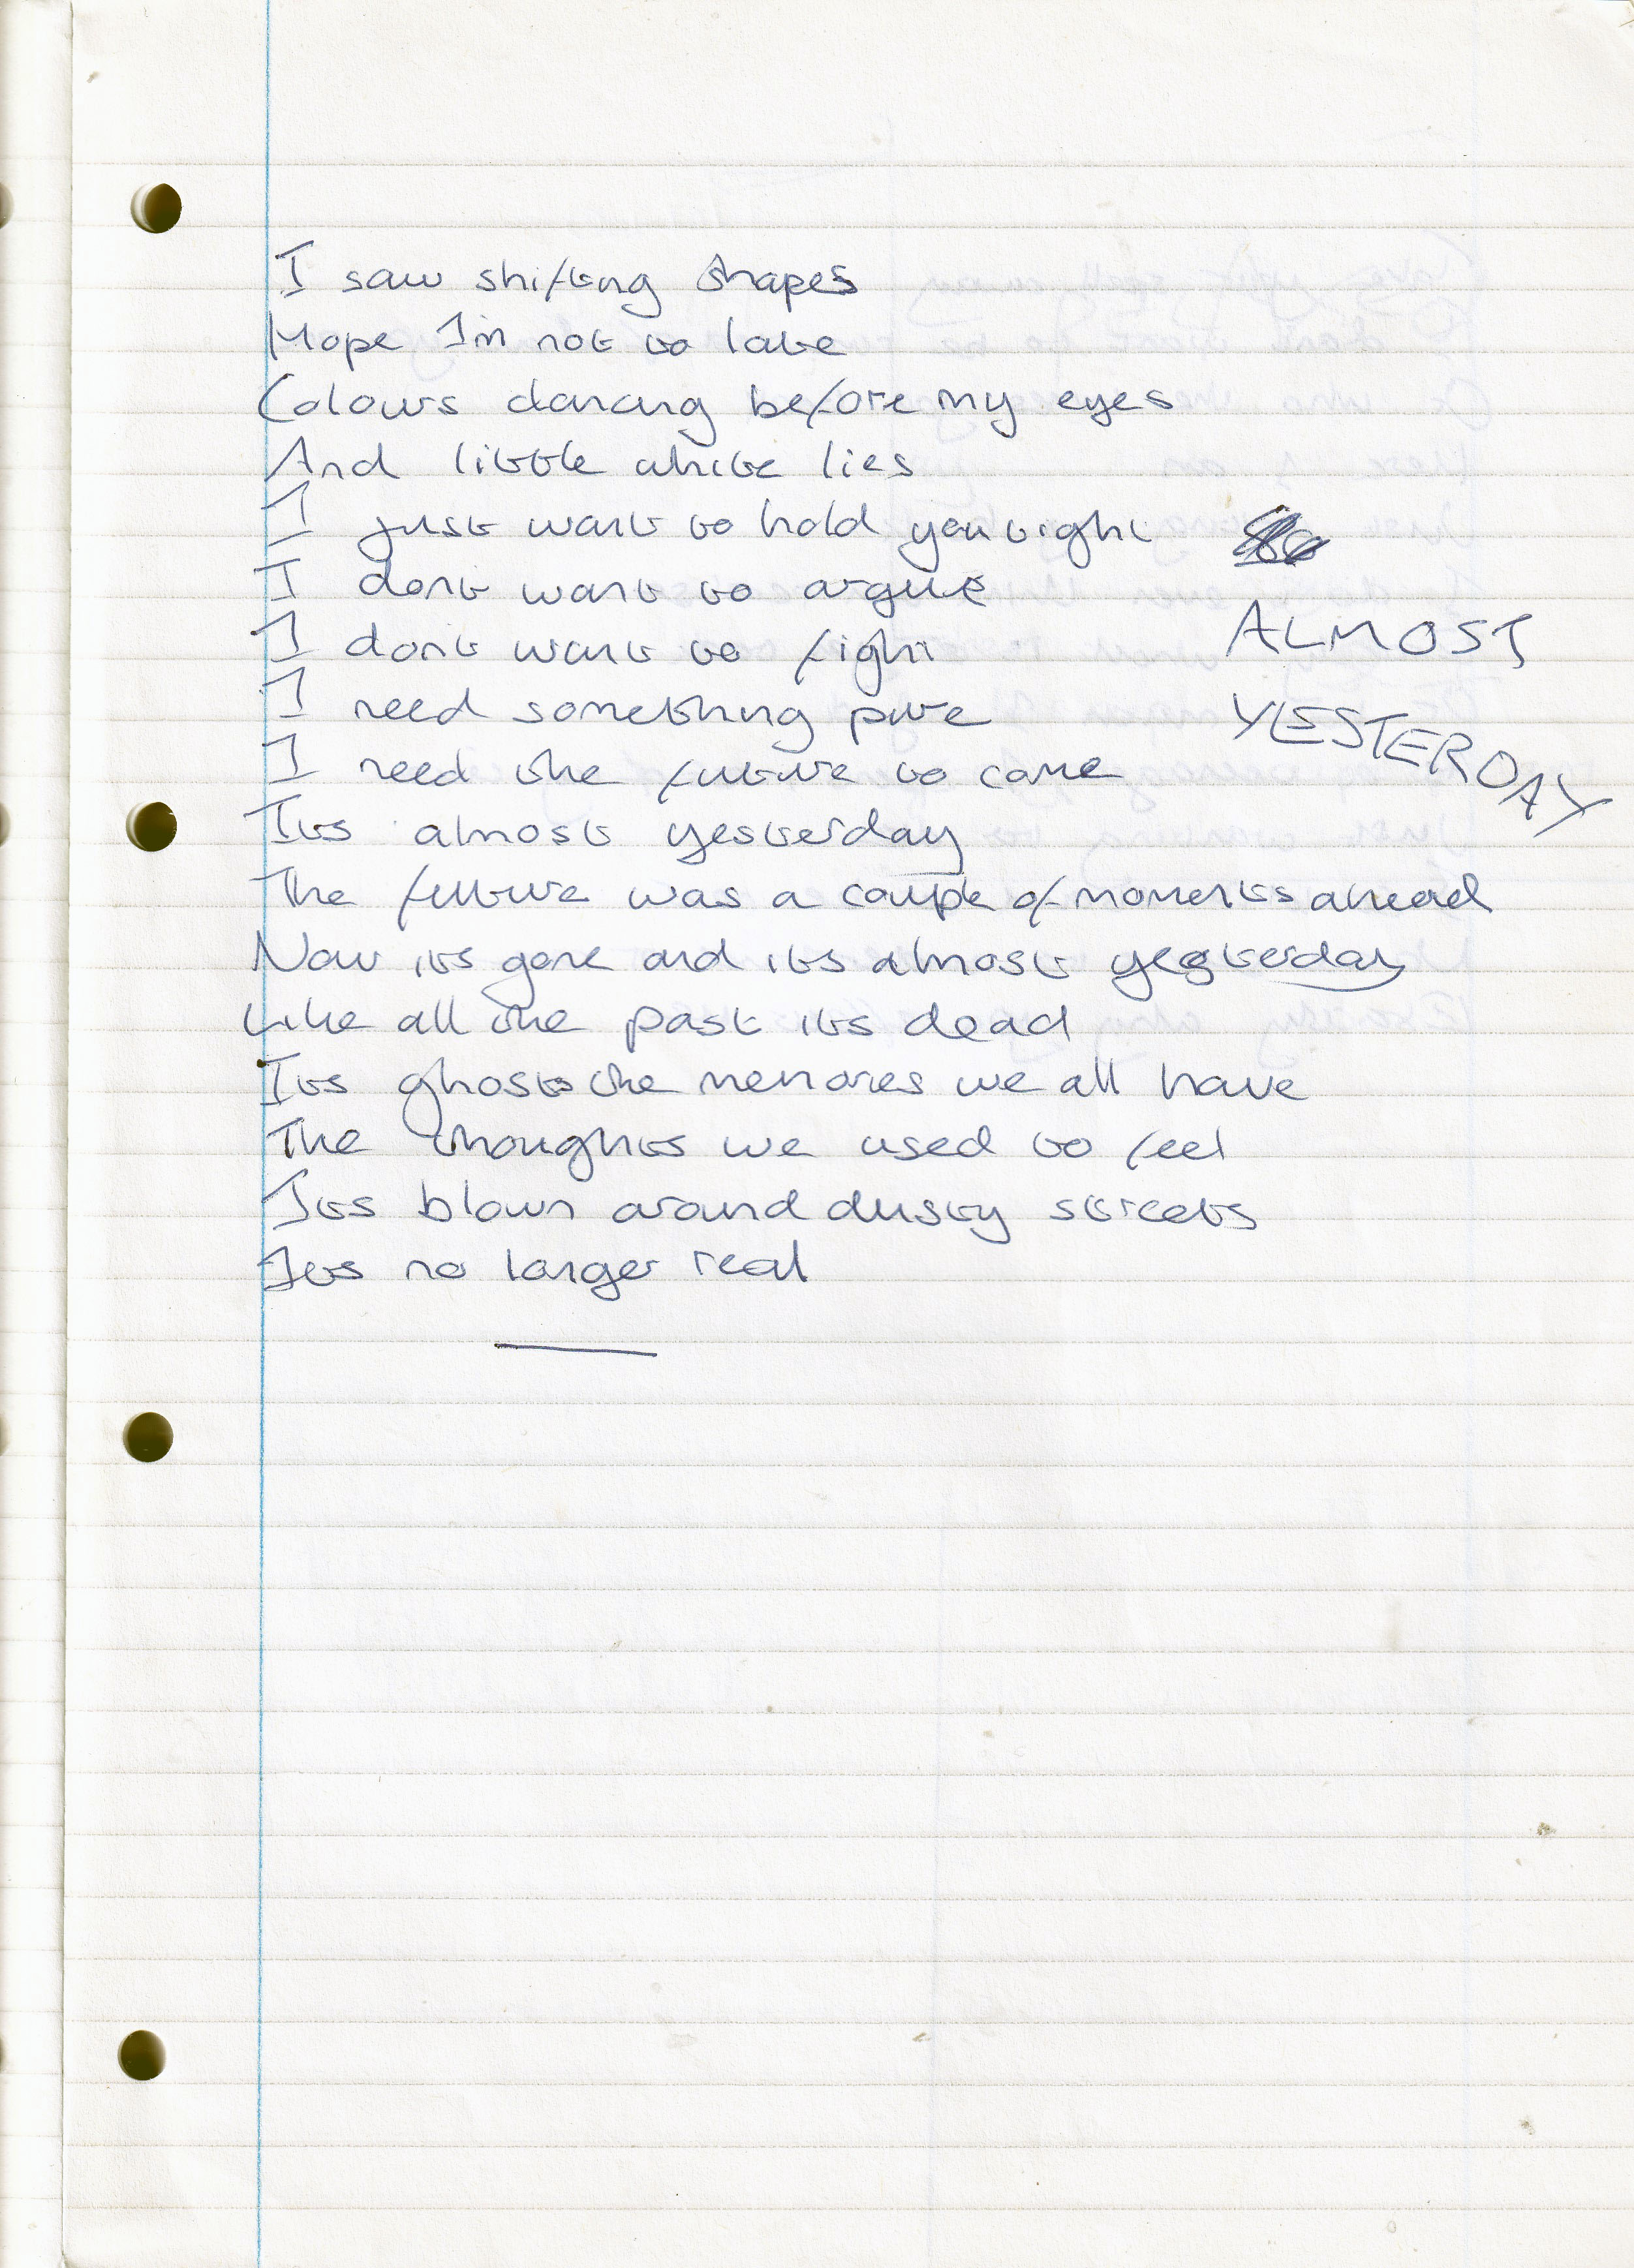 I saw shifting shapes
Hope I'm not to late
Colours dancing before my eyes
And little white lies
I just want to hold you tight
I dont want to argue
I dont want to fight
I need something pure
I need the future to come
Its almost yesterday
The future was a couple of moments ahead
Now its gone and its almost yesterday
Like all the past its dead
Its ghosts the memories we all have
The thoughts we used to feel
Its blown around dusty streets
Its no longer real
ALMOST
YESTERDAY